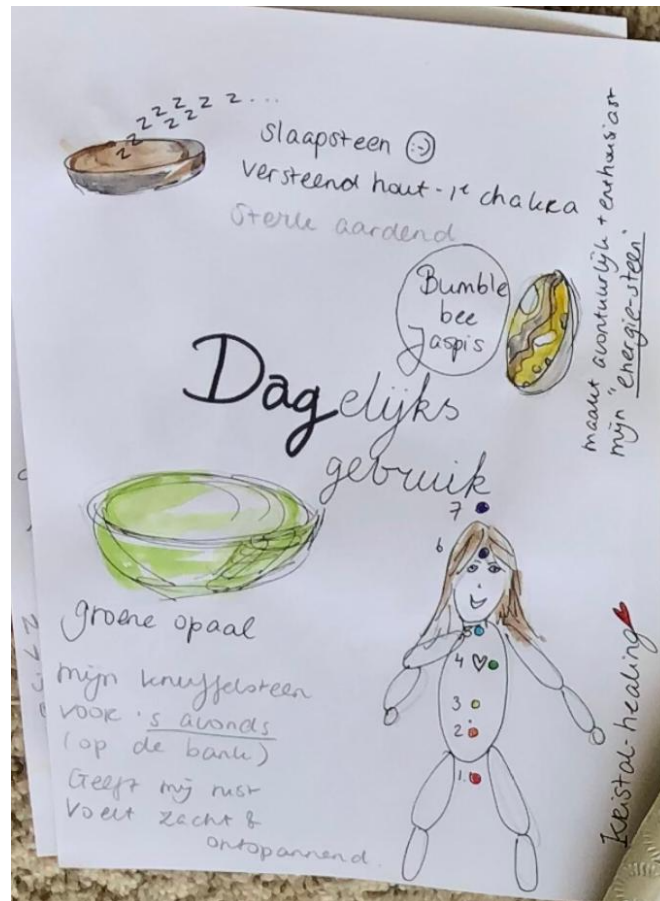 z z z z z z z z z...
slaapsteen
versteend hout - 1e chakra
Sterk aardend
Bumble
bee
Jaspis
maakt avontuurlijk + enthousiast
mijn "energie-steen"
Dagelijks
gebruik
groene opaal
mijn knuffelsteen
voor 's avonds
(op de bank)
Geeft mij rust
Voelt zacht &
ontspannend.
7
6
5
4
3
2
1.
Kristal-healing